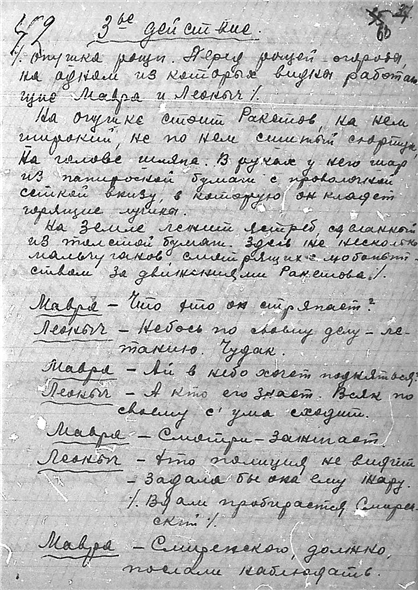 3ье действие.
/. Опушка рощи. Перед рощей – огороды,
на одном из которых видны работаю
щие Мавра и Леоныч /.
На опушке стоит Ракетов, на нем
широкий, не по нем сшитый сюртук,
На голове шляпа. В руках у него шар
из папиросной бумаги с проволочной
сеткой внизу, в которую он кладет
горящие лучины.
На земле лежит ястреб, сделанный
из толстой бумаги. Здесь же несколько
мальчуганов смотрящих с любопыт-
ством за движениями Ракетова./.
Мавра – Что это он стряпает?
Леоныч – Небось по своему делу – ле-
танию. Чудак.
Мавра – Ай в небо хочет подняться?
Леоныч – А кто его знает. Всяк по
своему с ума сходит.
Мавра – Смотри – зажигает
Леоныч – Это полиция не видит
– Задала бы она ему жару.
/. Вдали пробирается Смирен-
ский /.
Мавра – Смиренского, должно,
послали наблюдать.